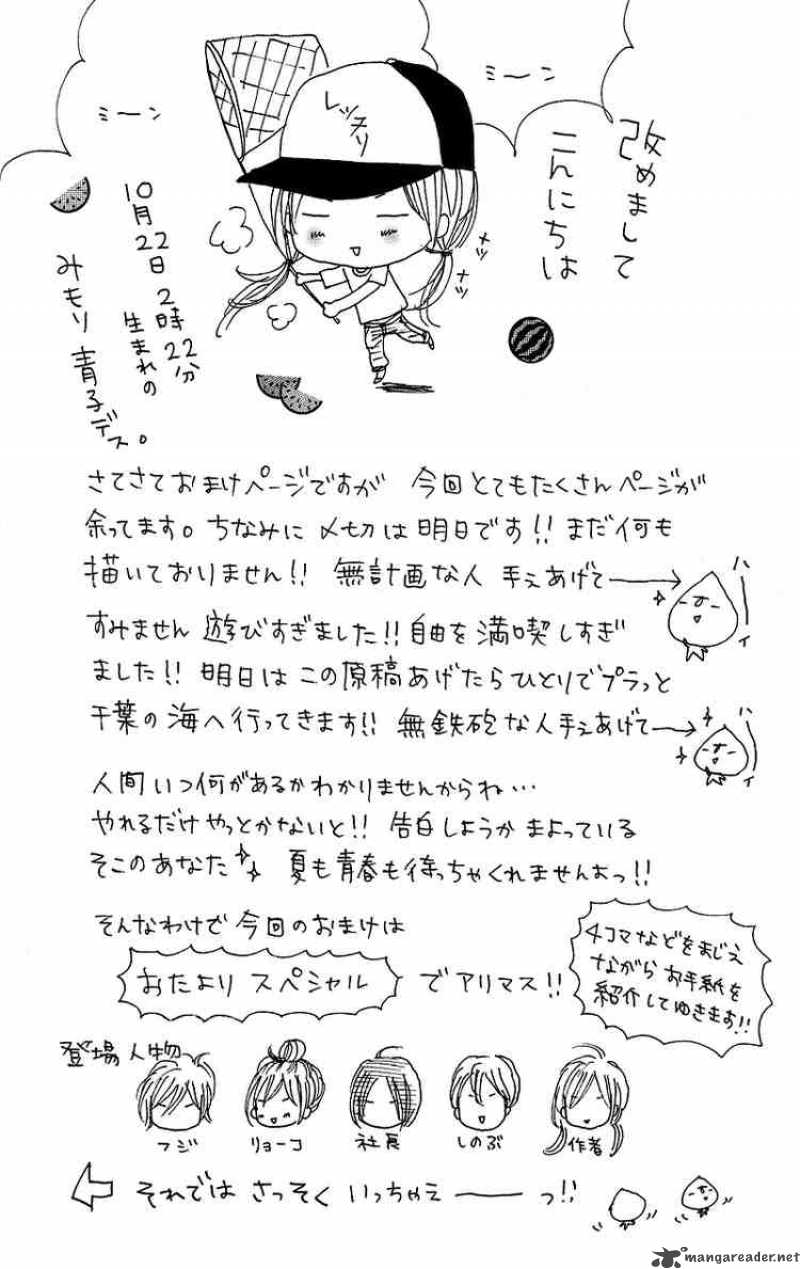 改めまして
こんにちは
ミーン
ミーン
レッスリ
メッ
メッ
10月22日 2時22分
生まれの
みもり青子デス。
さてさておまけページですが 今回とてもたくさんページが
余ってます。ちなみに〆切は明日です!! まだ何も
描いておりません!! 無計画な人 手ぇあげて→
ハーイ
すみません 遊びすぎました!! 自由を満喫しすぎ
ました!! 明日はこの原稿あげたらひとりでプラっと
千葉の海へ行ってきます!! 無鉄砲な人手ぇあげて→
ハーイ
人間いつ何があるかわかりませんからね…
やれるだけやっとかないと!! 告白しようかまよっている
そこのあなた 夏も青春も待っちゃくれませんよっ!!
そんなわけで今回のおまけは
おたよりスペシャル でアリマス!!
4コマなどをまじえ
ながらお手紙を
紹介してゆきます!!
登場人物
フジ リョーコ 社長 しのぶ 作者
それでは さっそく いっちゃえーーっ!!
mangareader.net